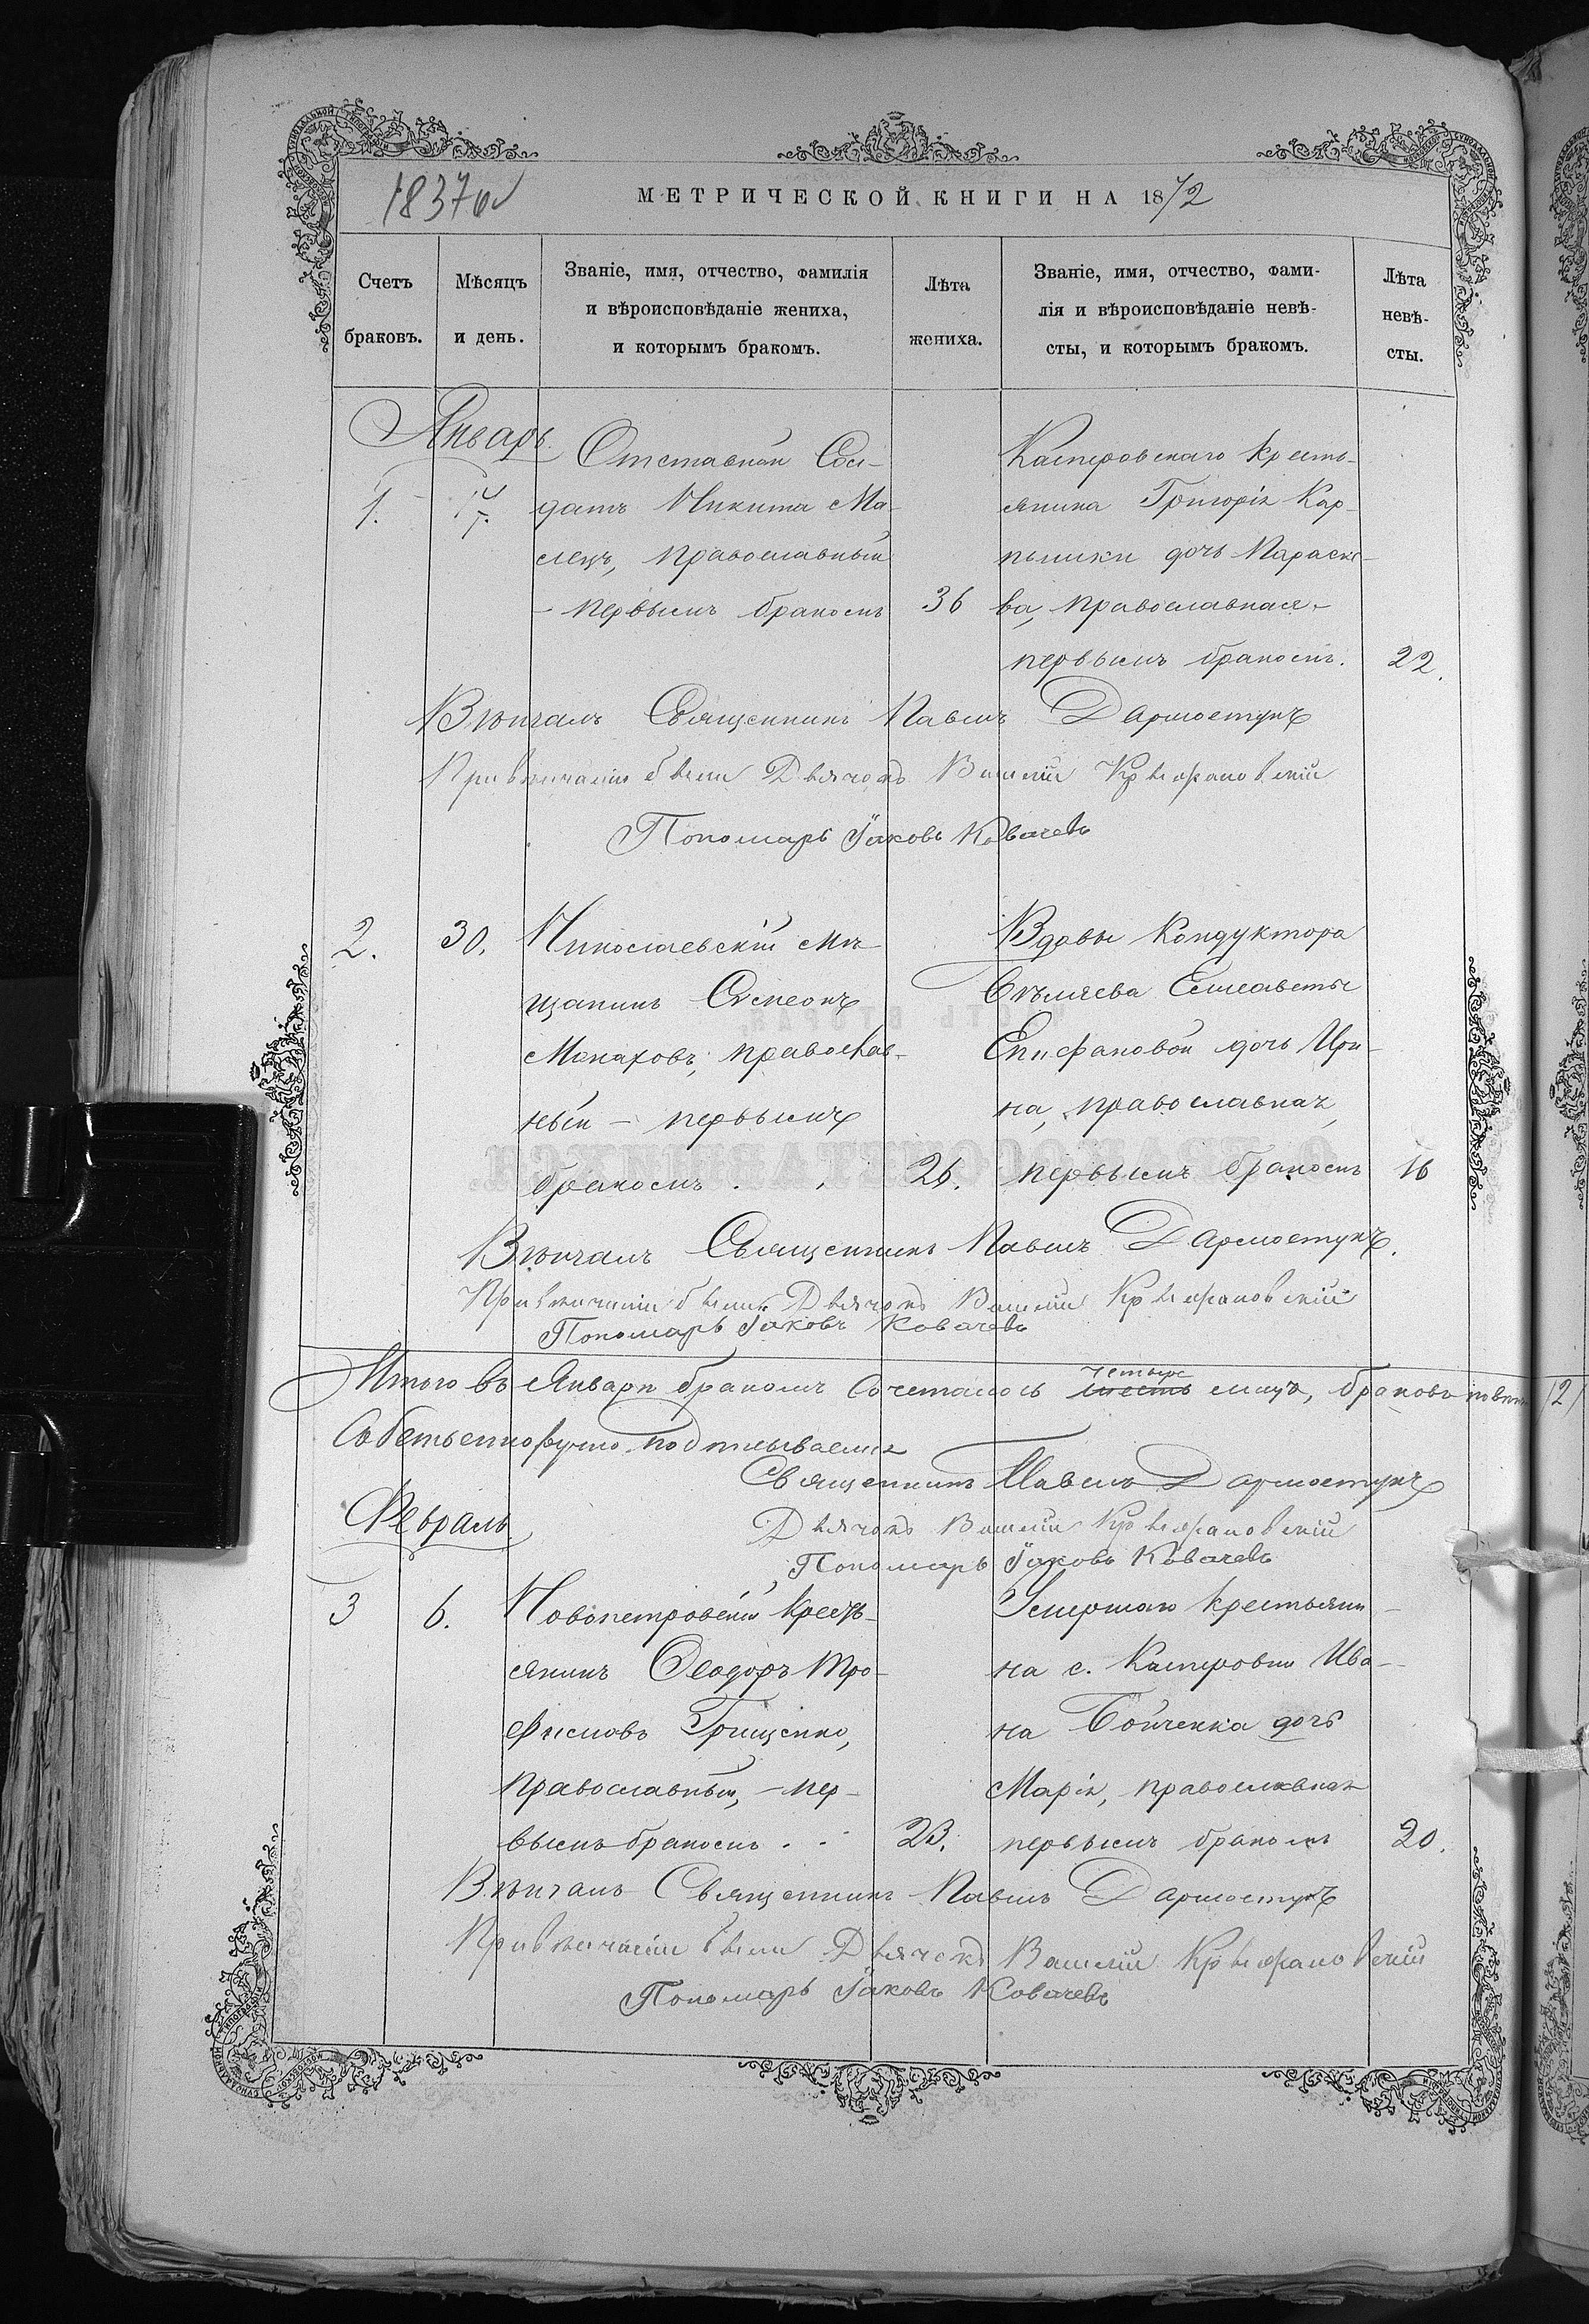 1837об
МЕТРИЧЕСКОЙ КНИГИ НА 1872
Счетъ браковъ.
Мѣсяцъ и день.
Званіе, имя, отчество, фамилія
и вѣроисповѣданіе жениха,
и которымъ бракомъ.
Лѣта жениха.
Званіе, имя, отчество, фами-
лія и вѣроисповѣданіе невѣ-
сты, и которымъ бракомъ.
Лѣта невѣ-
сты.
Январь
1.
Отставной Сол-
датъ Никита Ма-
лецъ, православный
- первымъ бракомъ
36
Каперовскаго кресть-
янина Григорія Кар-
пылики дочь Параске-
ва, православная,-
первымъ бракомъ.
22.
Вѣнчалъ Священникъ Павелъ Дармостукъ
При вѣнчаніи были Дьячокъ Василій Крыжановскій
Пономарь Іаковъ Ковачевъ
2.
30.
Николаевскій мѣ-
щанинъ Симеонъ
Монаховъ, православ-
ный - первымъ
бракомъ . .
26.
Вдовы Кондуктора
Елисаветы
Епифановой дочь Ири-
на, православная,
первымъ бракомъ
16
Вѣнчалъ Священникъ Павелъ Дармостукъ.
При вѣнчаніи были Дьячокъ Василій Крыжановскій
Пономарь Іаковъ Ковачевъ
Итого въ Январѣ бракомъ сочеталось четыре лицъ, браковъ 2
Собственноручно подписываемся
Священникъ Павелъ Дармостукъ
Дьячокъ Василій Крыжановскій
Пономарь Іаковъ Ковачевъ
Февраль
3
6.
Новопетровскій кресть-
янинъ Ѳеодоръ Тро-
фимовъ Грищенко,
православный, - пер-
вымъ бракомъ . .
23.
Умершаго крестьяни-
на с. Касперовки Ива-
на Бойченка дочь
Марія, православная
первымъ бракомъ
20.
Вѣнчалъ Священникъ Павелъ Дармостукъ
При вѣнчаніи были Дьячекъ Василій Крыжановскій
Пономарь Іаковъ Ковачевъ